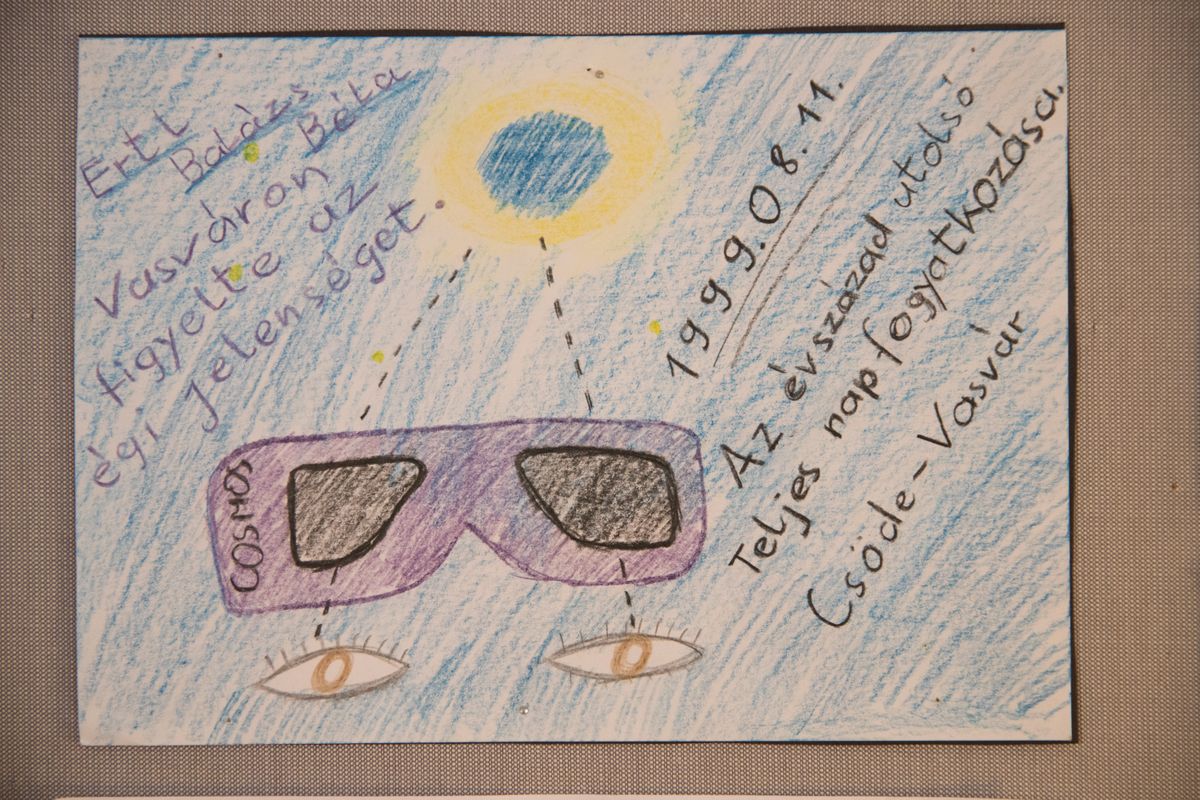 Ertl
Balázs
Béla
Vasváron
figyelte az
égi jelenséget.
1999.08.11.
Az évszázad utolsó
Teljes napfogyatkozása.
Csöde-Vasvár
COSMOS